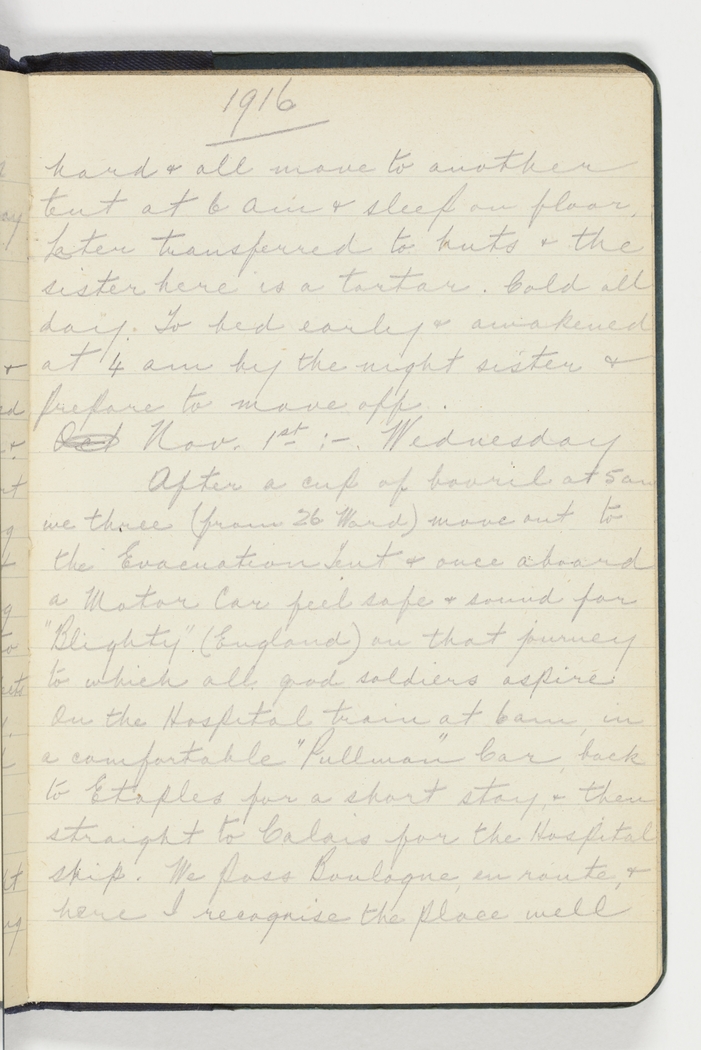 1916
hard & all move to another
tent at 6 am & sleep on floor,
later transferred to huts & the
sister here is a tartar. Cold all
day. To bed early & awakened
at 4 am by the night sister &
prepare to move off.
Oct Nov. 1st :-. Wednesday
After a cup of bovril at 5 am
we three (from 26 Ward) move out to
the Evacuation Tent & once aboard
a Motor Car feel safe & sound for
"Blighty". (England) on that journey
to which all good soldiers aspire.
On the Hospital train at 6 am, in
a comfortable "Pullman" Car, back
to Etaples for a short stay, & then
straight to Calais for the Hospital
ship. We pass Boulogne, en route, &
here I recognise the place well